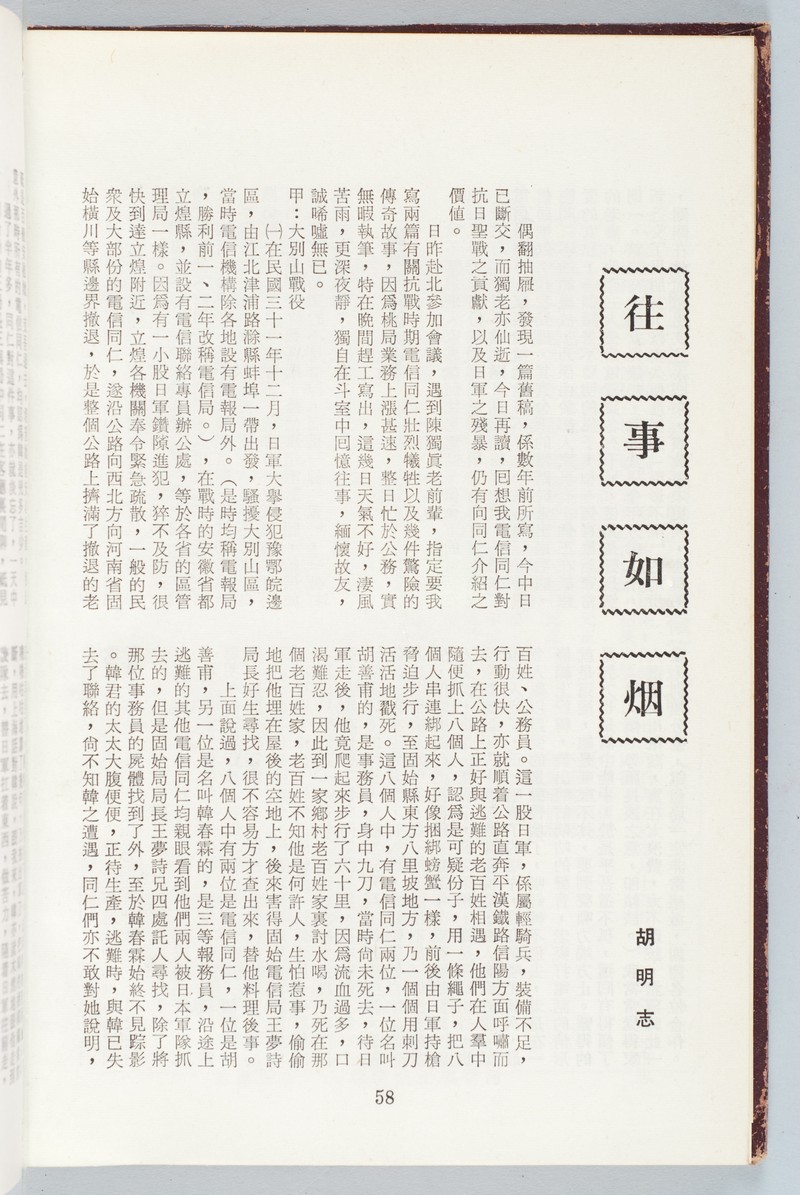 往事如烟
胡明志
偶翻抽屜，發現一篇舊稿，係數年前所寫，今中日
已斷交，而獨老亦仙逝，今日再讀，囘想我電信同仁對
抗日聖戰之貢獻，以及日軍之殘暴，仍有向同仁介紹之
價值。
日昨赴北參加會議，遇到陳獨眞老前輩，指定要我
寫兩篇有關抗戰時期電信同仁壯烈犧牲以及幾件驚險的
傳奇故事，因爲桃局業務上漲甚速，整日忙於公務，實
無暇執筆，特在晚間趕工寫出，這幾日天氣不好，淒風
苦雨，更深夜靜，獨自在斗室中囘憶往事，緬懷故友，
誠唏噓無已。
甲：大別山戰役
㈠在民國三十一年十二月，日軍大舉侵犯豫鄂皖邊
區，由江北津浦路滁縣蚌埠一帶出發，騷擾大別山區，
當時電信機構除各地設有電報局外。（是時均稱電報局
，勝利前一、二年改稱電信局。），在戰時的安徽省都
立煌縣，並設有電信聯絡專員辦公處，等於各省的區管
理局一樣。因爲有一小股日軍鑽隙進犯，猝不及防，很
快到達立煌附近，立煌各機關奉令緊急疏散，一般的民
衆及大部份的電信同仁，遂沿公路向西北方向河南省固
始橫川等縣邊界撤退，於是整個公路上擠滿了撤退的老
百姓、公務員。這一股日軍，係屬輕騎兵，裝備不足，
行動很快，亦就順着公路直奔平漢鐵路信陽方面呼嘯而
去，在公路上正好與逃難的老百姓相遇，他們在人羣中
隨便抓上八個人，認爲是可疑份子，用一條繩子，把八
個人串連綁起來，好像捆綁螃蟹一樣，前後由日軍持槍
脅迫步行，至固始縣東方八里坡地方，乃一個個用刺刀
活活地戳死。這八個人中，有電信同仁兩位，一位名叫
胡善甫的，是事務員，身中九刀，當時尙未死去，待日
軍走後，他竟爬起來步行了六十里，因爲流血過多，口
渴難忍，因此到一家鄉村老百姓家裏討水喝，乃死在那
個老百姓家，老百姓不知他是何許人，生怕惹事，偷偷
地把他埋在屋後的空地上，後來害得固始電信局王夢詩
局長好生尋找，很不容易方才查出來，替他料理後事。
上面說過，八個人中有兩位是電信同仁，一位是胡
善甫，另一位是名叫韓春霖的，是三等報務員，沿途上
逃難的其他電信同仁均親眼看到他們兩人被日本軍隊抓
去的，但是固始局局長王夢詩兄四處託人尋找，除了將
那位事務員的屍體找到了外，至於韓春霖始終不見踪影
。韓君的太太大腹便便，正待生產，逃難時，與韓已失
去了聯絡，尙不知韓之遭遇，同仁們亦不敢對她說明，
58